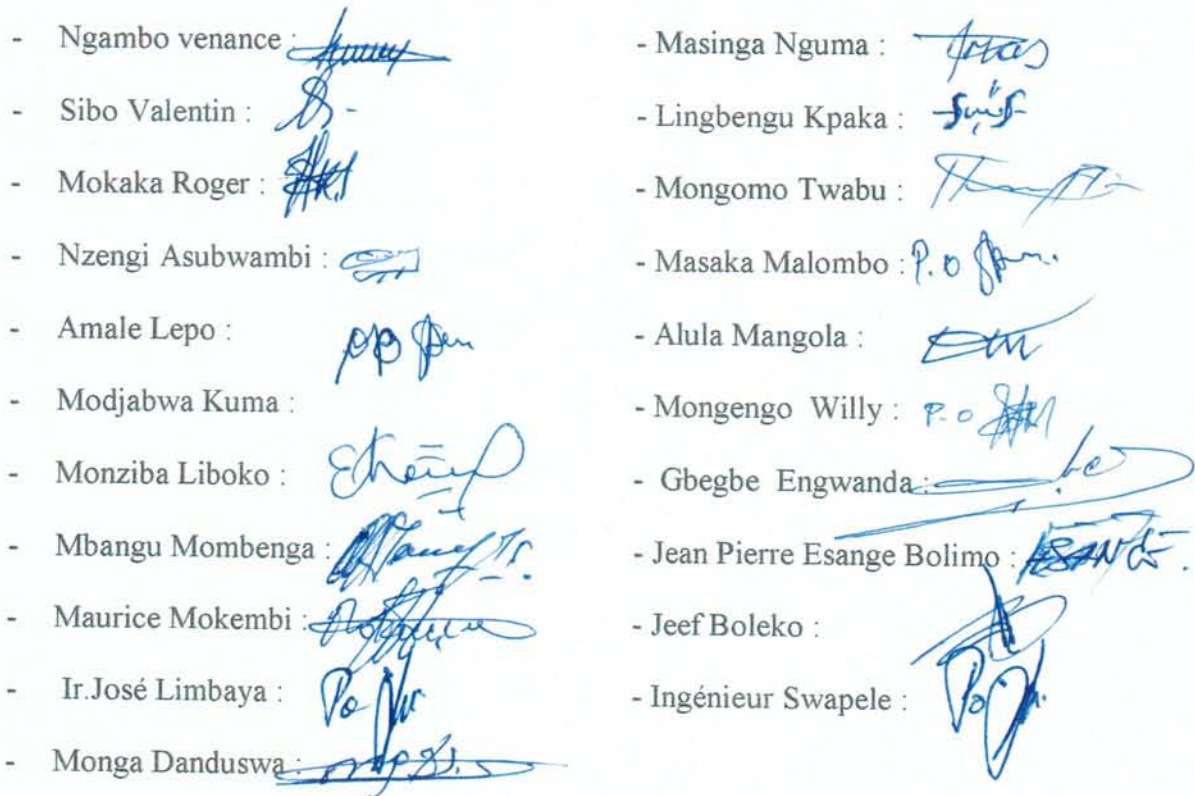 - Ngambo venance :
- Sibo Valentin :
- Mokaka Roger :
- Nzengi Asubwambi :
- Amale Lepo :
- Modjabwa Kuma :
- Monziba Liboko :
- Mbangu Mombenga :
- Maurice Mokembi :
- Ir.José Limbaya :
- Monga Danduswa :
- Masinga Nguma :
- Lingbengu Kpaka :
- Mongomo Twabu :
- Masaka Malombo : P.O
- Alula Mangola :
- Mongengo Willy : P.O
- Gbegbe Engwanda :
- Jean Pierre Esange Bolimo : ESANGE
- Jeef Boleko :
- Ingénieur Swapele : Po